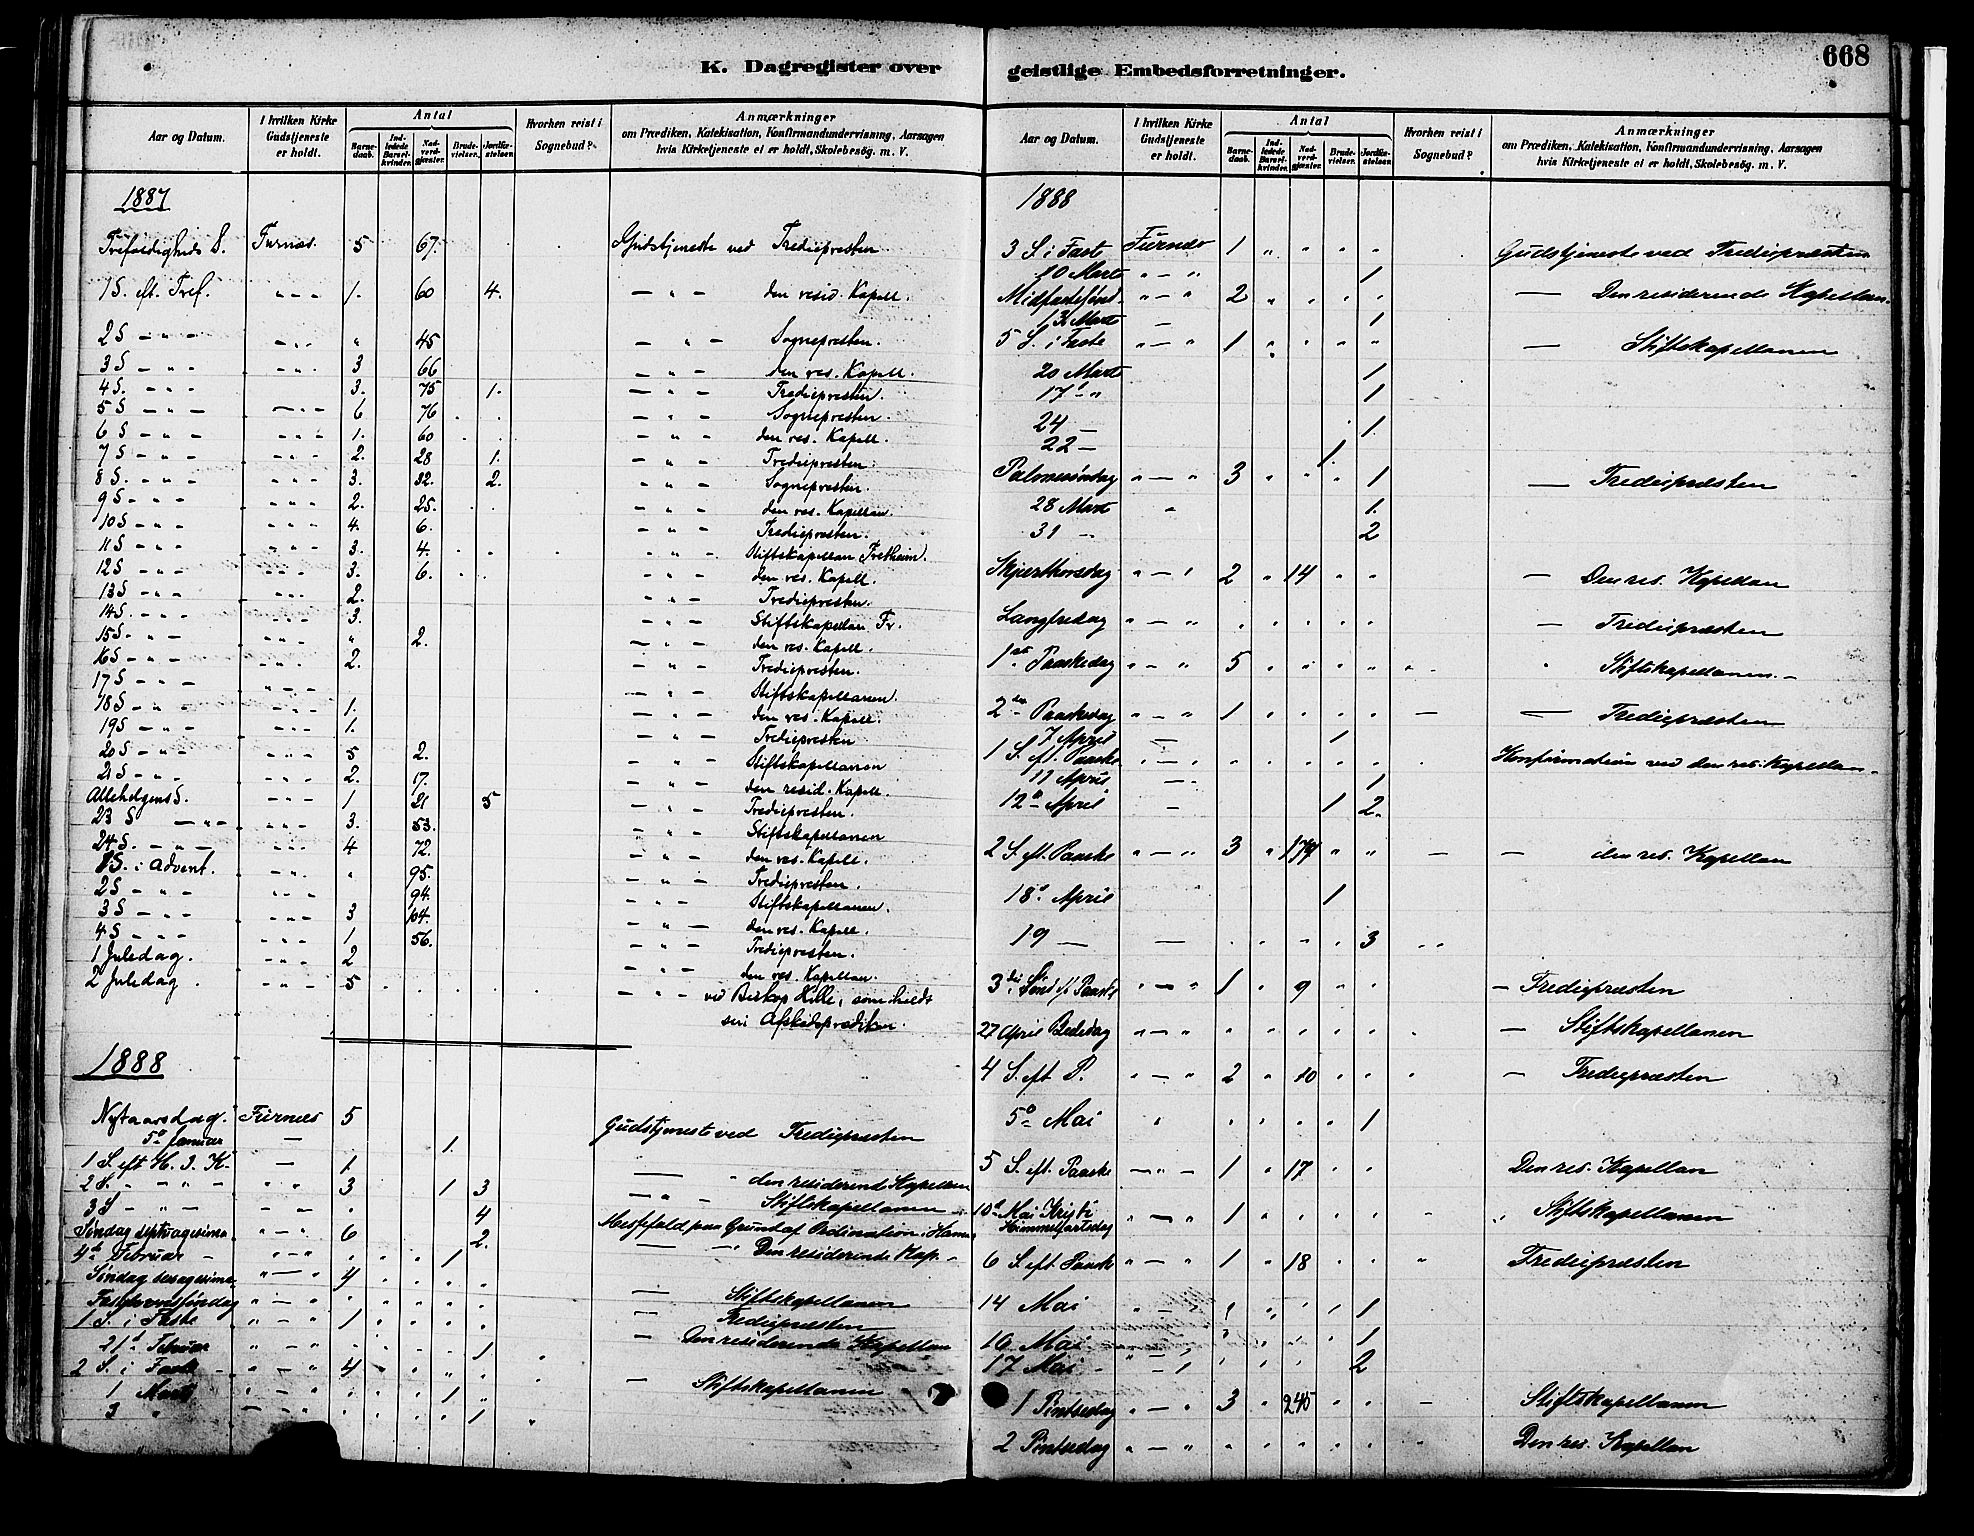 668
K. Dagregister over geistlige Embedsforretninger.
Aar og Datum. I hvilken Kirke Gudstjeneste er holdt. Antal Barnedaab. Indledede Barselkvinder. Nadverdgjæster. Brudevielser. Jordfæstelser. Hvorhen reist i Sognebud? Anmærkninger om Prædiken, Katekisation, Konfirmandundervisning, Aarsagen hvis Kirketjeneste ei er holdt, Skolebesøg. m. V.
1887
Trefoldigheds S. Furnæs. 5 67. Gudstjeneste ved Tredieprestən
1 S. eft. Tref. " 1. 60 4. — " — den resid. Kapell.
2 S — " — " " 45 — " — Sognepresten.
3 S — " — " 3 66 — " — den res. Kapell.
4 S. — " — " 3. 75 1. — " — Trediepresten.
5 S — " — — " — 6 76 — " — Sognepresten.
6 S — " — " 1. 60 — " — den res. Kapell.
7 S — " — " 2. 28 1. — " — Trediepresten.
8 S. — " — " 3. 32. 2. — " — Sognepresten.
9 S — " — " 2. 25. — " — den res. Kapellan.
10 S — " — " 4. 6. — " — Trediepresten.
11 S — " — " 3. 4. — " — Stiftskapellan Fretheim.
12 S — " — " 3. 6. — " — den res. Kapell.
13 S — " — " 2. — " — Trediepresten.
14 S. — " — " 3. — " — Stiftskapellan Fr.
15 S. — " — " " 2. — " — den res. Kapell.
16 S — " — " 2. — " — Trediepresten.
17 S — " — " — " — Stiftskapellanen.
18 S — " — " 1. — " — den res. Kapell.
19 S — " — " 1. — " — Tredieprestens
20 S — " — " 5 2. — " — Stiftskapellanen
21 S — " — " 2. 17. — " — den resid. Kapell.
Allehelgens S. " 1 21 5 — " — Tredieprestens.
23 S — " — " 3. 53. — " — Stiftskapellanen
24 S. — " — " 4 72. — " — den res. Kapell.
1 S. i Advent. " " 95. — " — Tredieprestens.
2 S — " — " 94. — " — Stiftskapellanen.
3 S — " — " 3 104. — " — den res. Kapell.
4 S — " — " 1 56. — " — Tredieprestens.
1 Juledag. " 2 — " — den res. Kapellan.
2 Juledag. " 5 — " — ved Biskop Hille, som holdt
sin Afskedsprædiken.
1888
Nytaarsdag. Furnæs 5 Gudstjeneste ved Trediepræsten
5te Januar — 1.
1 S. eft H. 3. K. — 1. — " den residerend Kapellan
2 S. — " — " 3 1 3 — " — Stiftskapellanen
3 S — " — " " 4 Messefald paa Grund af Ordination i Hamar
Søndag septuagesima " — " 6 2. — " Den residerende Kap.
4de Februar — " 1
Søndag sexagesima " — " 4 — Stiftskapellanen
Fastelavnssøndag " — " — Trediepræsten
1 S. i Faste " — " 1 — Den residerende Kapellan
21de Februar " — " 1
2 S. i Faste " — " 4 — Stiftskapellanen
1 Marts " — " 1
3 " 1
Aar og Datum. I hvilken Kirke Gudstjeneste er holdt. Antal Barnedaab. Indledede Barselkvinder. Nadverdgjæster. Brudevielser. Jordfæstelser. Hvorhen reist i Sognebud? Anmærkninger om Prædiken, Katekisation, Konfirmandundervisning, Aarsagen hvis Kirketjeneste ei er holdt, Skolebesøg. m. V.
1888
3 S. i Fast Furnæs 1 " " " " Gudstjeneste ved Trediepræsten
10 Marts " — " 1
Midfastesønd. " — " 2 " " " " — Den residerende Kapellan
13 Marts — 1
5 S. i Faste " — " 1 " " " " — Stiftskapellanen
20 Marts 1
17 — " 1
24 — 1.
22 — 1.
Palmesøndag " — " 3 " " " 1 — Trediepræsten
28 Marts " 1.
31 — 2
Skjærthorsdag " — " 2 " 14 " " — Den res. Kapellan
Langfredag " — " " " " " " — Trediepræsten
1ste Paaskedag " — " 5 " " " " " Stiftskapellanen. —
2den Paaskedag " — " 1 " " " " — — Trediepræsten
7 April — 1
1 S. eft. Paaske " — " " " " " " Konfirmation ved den res. Kapellan.
11 April — 1
12te April — 1 2.
2 S. eft. Paaske " — " 3 " 179 " " — — den res. Kapellan
18de April 1
19 — — " " " " 3
3die Sønd eft Paaske " — " 1 " 9 " " — Trediepræsten
27 April Bededag " — " " " " " " — Stiftskapellanen
4 S. eft P. " — " 2 " 10 " " — Trediepræsten
5te Mai " " " " " 1
5 S. eft. Paaske — " — 1 " 17 " " Den res. Kapellan
10de Mai Kristi Himmelfartsdag " — " 1 " " " " Stiftskapellanen
6 S. eft Paaske " — " 1 " 18 " " Trediepræsten
14 Mai " — " " " " 1
16 Mai " " " 1
17 Mai — " — " " " " 2
1 Pintsedag " — " 3 " 245 " " — Stiftskapellanen
2 Pintsedag " — " " " " " " Den res. Kapellan